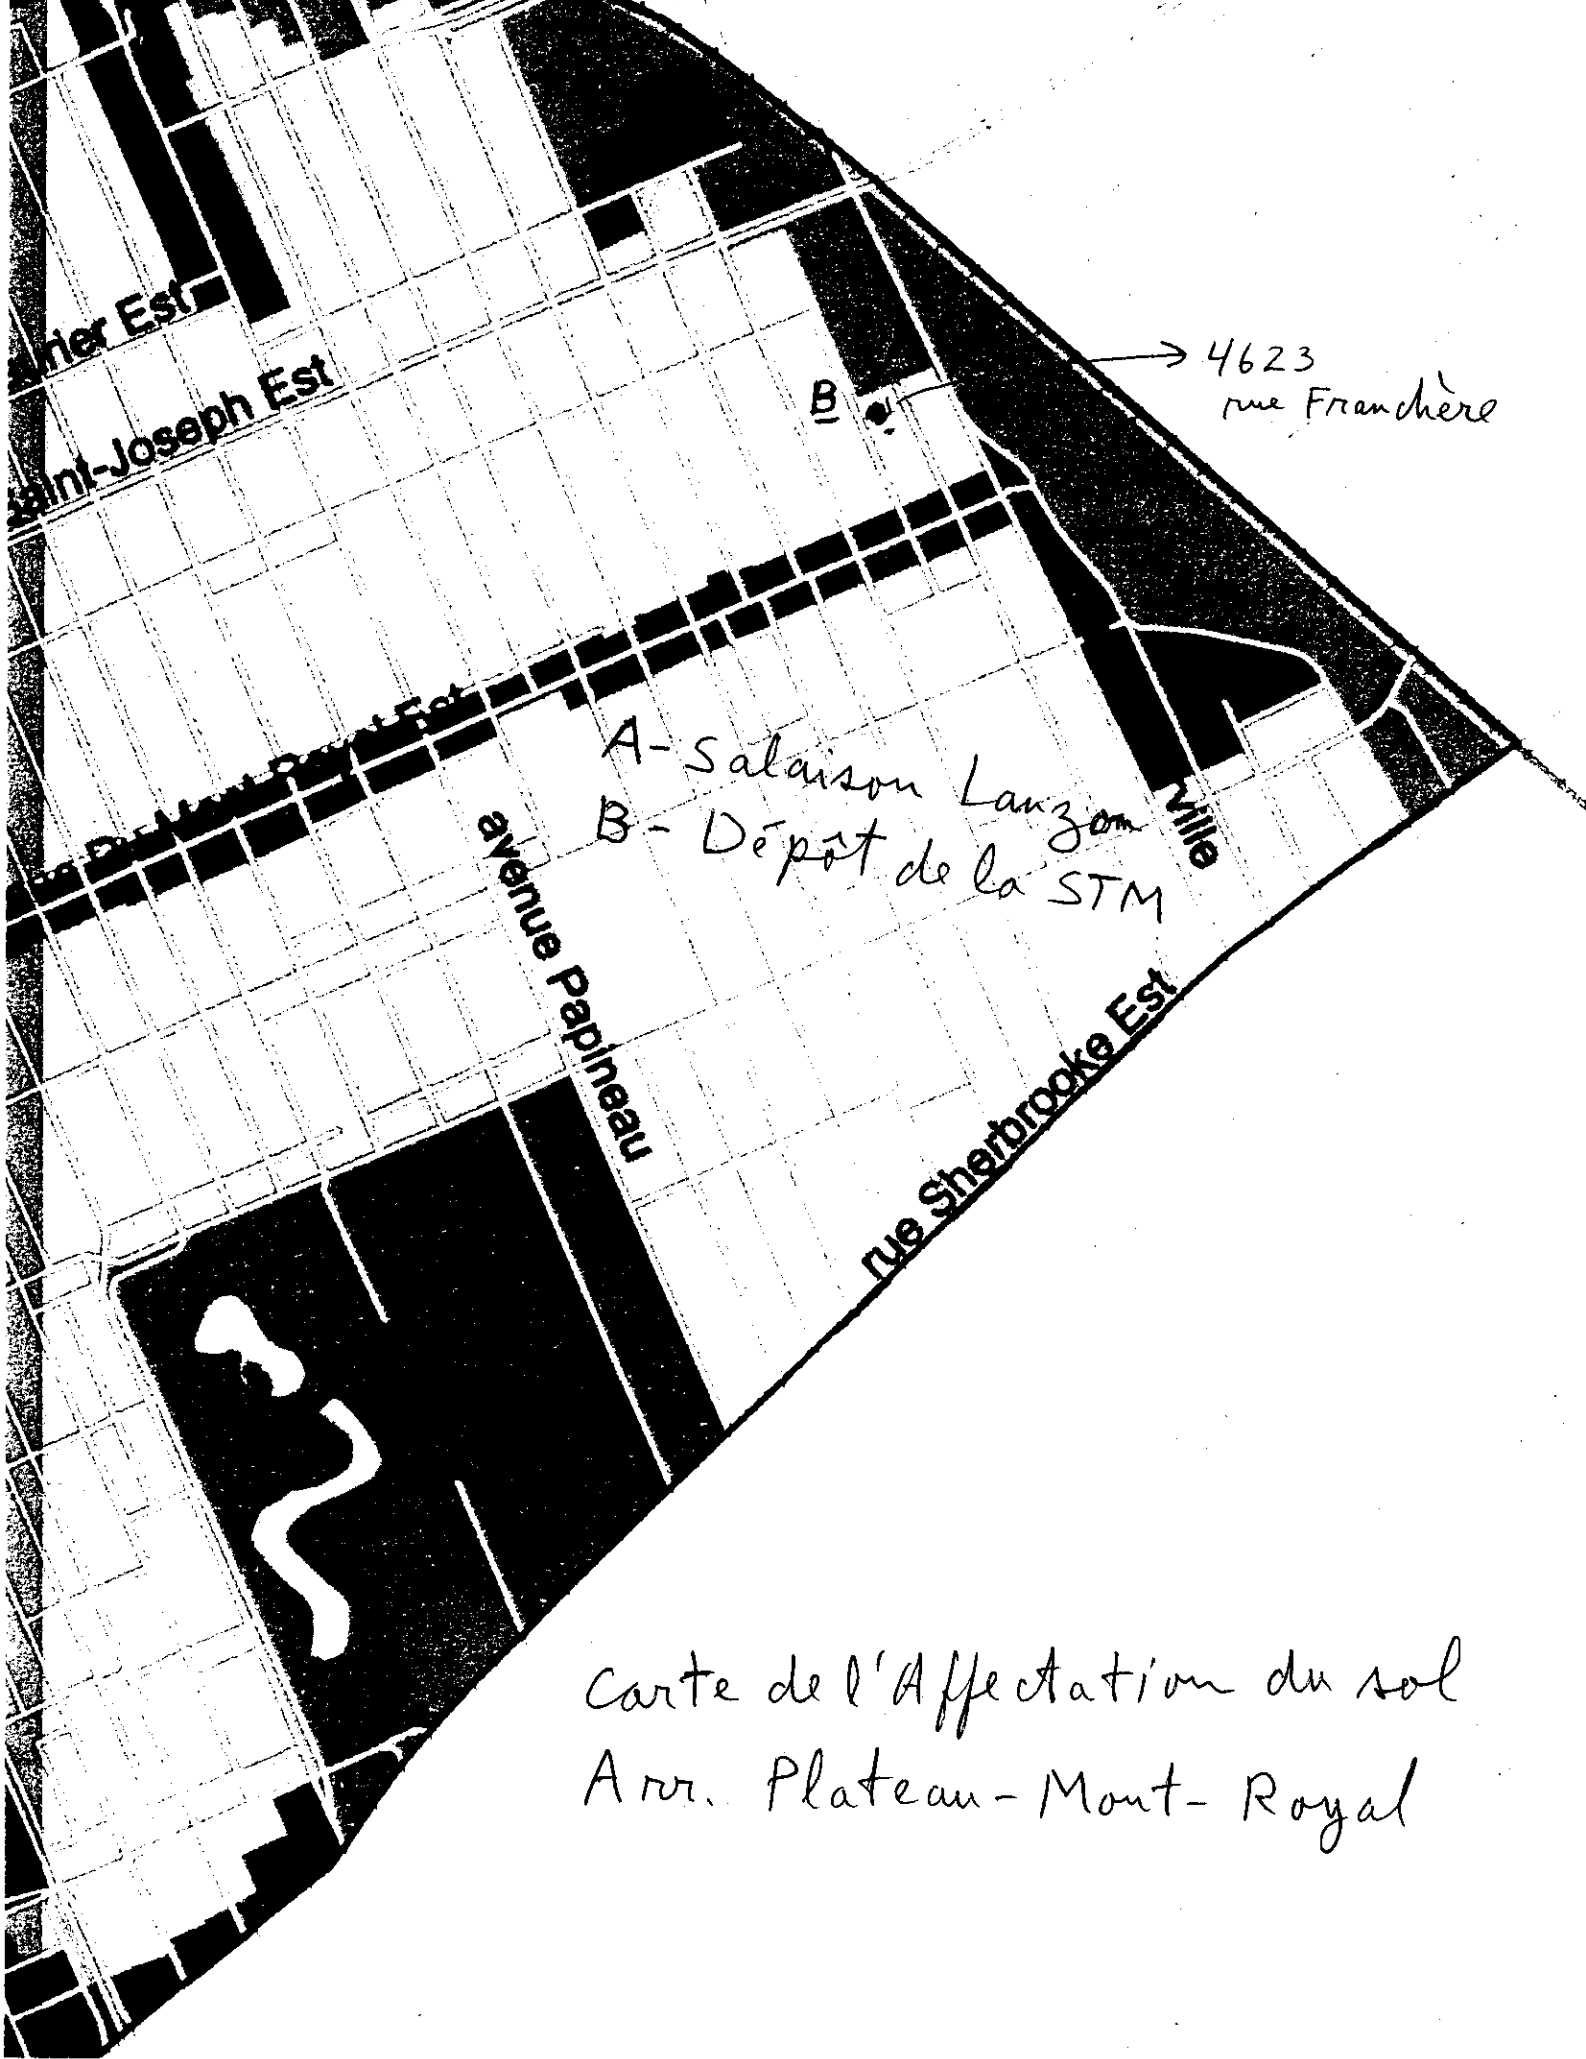 rier Est
aint-Joseph Est
4623
rue Franchère
B
A- Salaison Lanzon
B- Dépôt de la STM
ville
avenue Papineau
rue Sherbrooke Est
Carte de l'Affectation du sol
Arr. Plateau-Mont-Royal